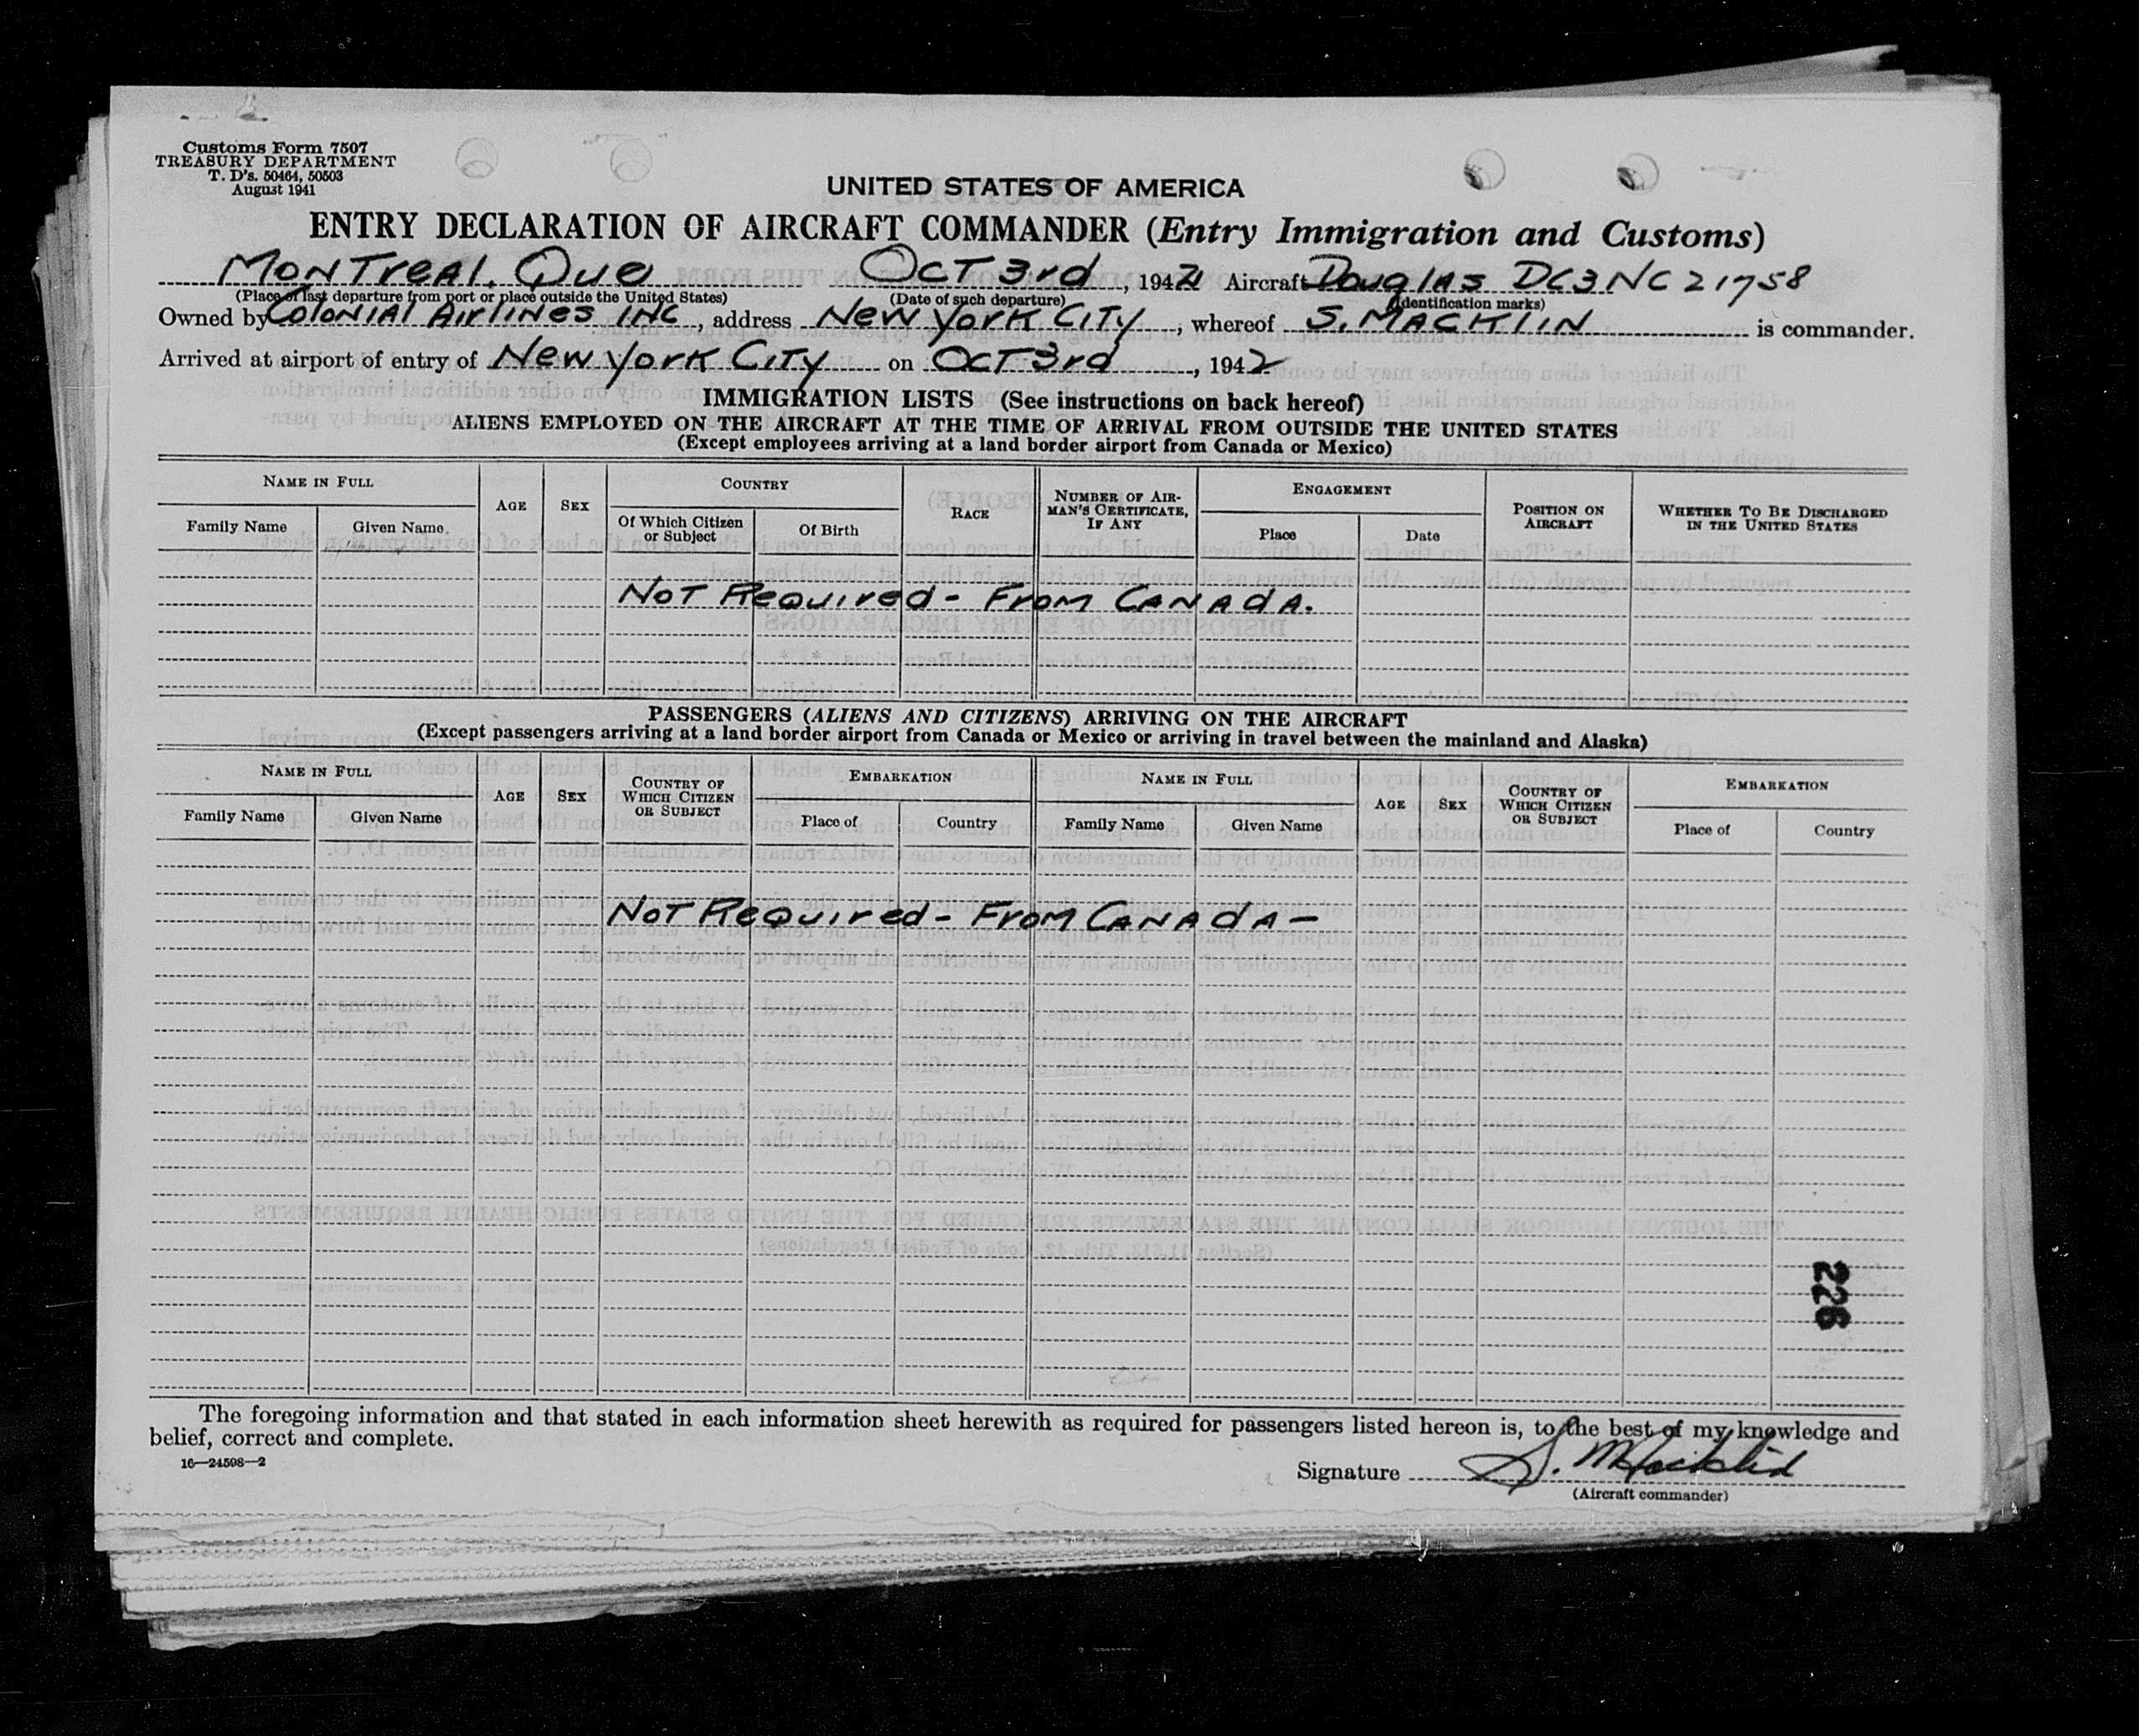 Customs Form 7507
TREASURY DEPARTMENT
T. D's. 50464, 50503
August 1941
UNITED STATES OF AMERICA
ENTRY DECLARATION OF AIRCRAFT COMMANDER (Entry Immigration and Customs)
Montreal, Que Oct 3rd, 1942 Aircraft Douglas DC3 NC21758
(Place of last departure from port or place outside the United States) (Date of such departure) (Identification marks)
Owned by Colonial Airlines Inc, address New York City, whereof S. Macklin is commander.
Arrived at airport of entry of New York City on Oct 3rd, 1942
IMMIGRATION LISTS (See instructions on back hereof)
ALIENS EMPLOYED ON THE AIRCRAFT AT THE TIME OF ARRIVAL FROM OUTSIDE THE UNITED STATES
(Except employees arriving at a land border airport from Canada or Mexico)
NAME IN FULL AGE SEX COUNTRY RACE NUMBER OF AIRMAN'S CERTIFICATE, IF ANY ENGAGEMENT POSITION ON AIRCRAFT WHETHER TO BE DISCHARGED IN THE UNITED STATES
Family Name Given Name Of Which Citizen or Subject Of Birth Place Date
Not Required - From Canada.
PASSENGERS (ALIENS AND CITIZENS) ARRIVING ON THE AIRCRAFT
(Except passengers arriving at a land border airport from Canada or Mexico or arriving in travel between the mainland and Alaska)
NAME IN FULL AGE SEX COUNTRY OF WHICH CITIZEN OR SUBJECT EMBARKATION NAME IN FULL AGE SEX COUNTRY OF WHICH CITIZEN OR SUBJECT EMBARKATION
Family Name Given Name Place of Country Family Name Given Name Place of Country
Not Required - From Canada -
226
The foregoing information and that stated in each information sheet herewith as required for passengers listed hereon is, to the best of my knowledge and
belief, correct and complete.
16—24598—2
Signature S. Macklin
(Aircraft commander)